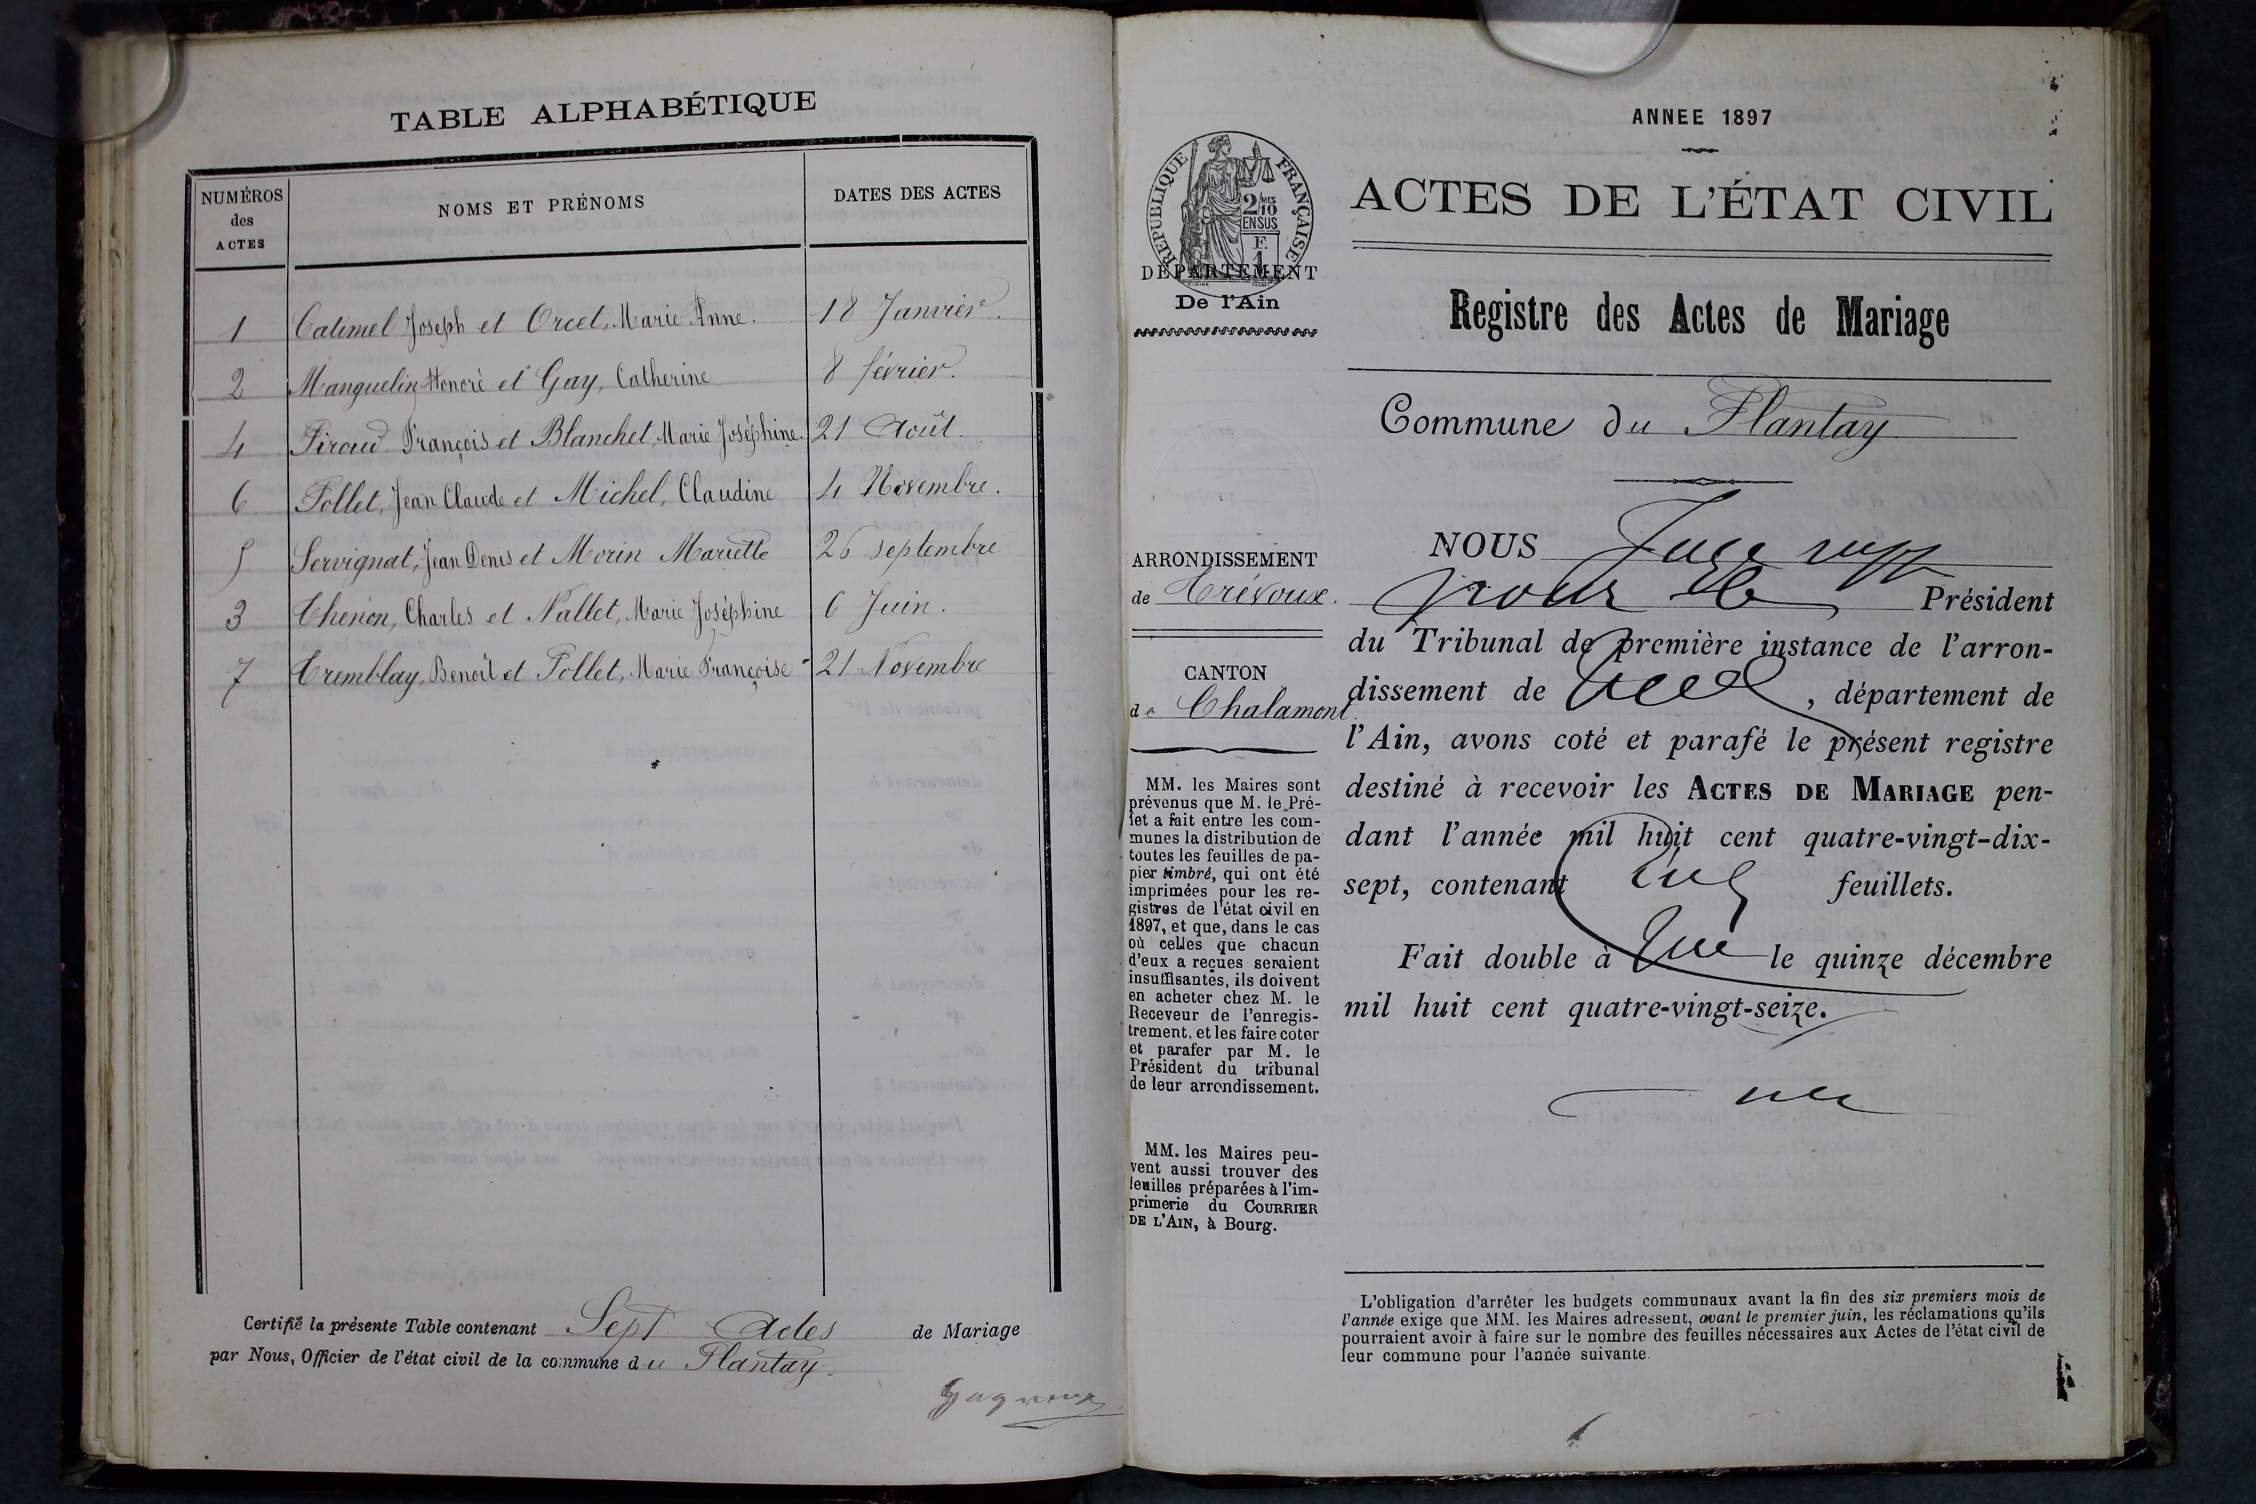 TABLE ALPHABÉTIQUE
NUMÉROS
des
ACTES
NOMS ET PRÉNOMS
DATES DES ACTES
1 Catimel Joseph et Orcet, Marie Anne. 18 Janvier.
2 Manguelin Honoré et Gay, Catherine 8 février.
4 Piroud François et Blanchet, Marie Joséphine. 21 Août.
6 Pollet, Jean Claude et Michel, Claudine 4 Novembre.
5 Servignat, Jean Denis et Morin Mariette 26 septembre
3 Thenon, Charles et Nallet, Marie Joséphine 6 Juin.
7 Tremblay, Benoît et Pollet, Marie Françoise 21 Novembre
Certifié la présente Table contenant Sept Actes de Mariage
par Nous, Officier de l'état civil de la commune du Plantay.
ANNEE 1897
RÉPUBLIQUE FRANÇAISE
2/10
MES
EN SUS
F.
1
DÉPARTEMENT
De l'Ain
ACTES DE L'ÉTAT CIVIL
Registre des Actes de Mariage
Commune du Plantay
ARRONDISSEMENT
de Trévoux.
CANTON
de Chalamont.
MM. les Maires sont
prévenus que M. le Pré-
fet a fait entre les com-
munes la distribution de
toutes les feuilles de pa-
pier timbré, qui ont été
imprimées pour les re-
gistres de l'état civil en
1897, et que, dans le cas
où celles que chacun
d'eux a reçues seraient
insuffisantes, ils doivent
en acheter chez M. le
Receveur de l'enregis-
trement, et les faire coter
et parafer par M. le
Président du tribunal
de leur arrondissement.
MM. les Maires peu-
vent aussi trouver des
feuilles préparées à l'im-
primerie du COURRIER
DE L'AIN, à Bourg.
NOUS Juge
pour le Président
du Tribunal de première instance de l'arron-
dissement de , département de
l'Ain, avons coté et parafé le présent registre
destiné à recevoir les ACTES DE MARIAGE pen-
dant l'année mil huit cent quatre-vingt-dix-
sept, contenant feuillets.
Fait double à le quinze décembre
mil huit cent quatre-vingt-seize.
L'obligation d'arrêter les budgets communaux avant la fin des six premiers mois de
l'année exige que MM. les Maires adressent, avant le premier juin, les réclamations qu'ils
pourraient avoir à faire sur le nombre des feuilles nécessaires aux Actes de l'état civil de
leur commune pour l'année suivante.